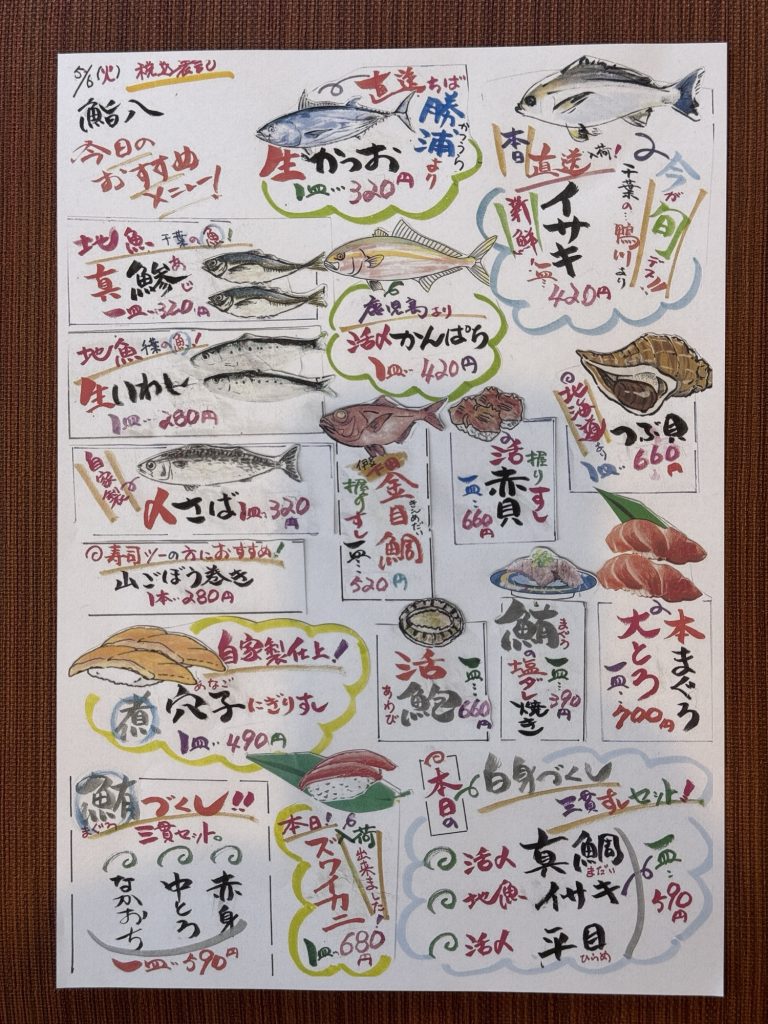 5/6(火) 税込表記
鮨八
今日の
おすすめ
メニュー!
直送ちば
勝浦より
かつうら
生かつお
1皿…320円
本日入荷!
直送
千葉の…鴨川より
今が旬デス!!
新鮮
イサキ
一皿…420円
地魚 千葉の魚!
真鯵
あじ
一皿…320円
鹿児島より
活〆かんぱち
1皿…420円
地魚 千葉の魚!
生いわし
1皿…280円
北海道より
つぶ貝
1皿…660円
自家製
〆さば 1皿…320円
伊豆下田
金目鯛
きんめだい
握りすし
一皿…520円
活赤貝
握りすし
一皿…660円
寿司ツーの方におすすめ!
山ごぼう巻き
1本…280円
本まぐろ
大とろ
一皿…700円
鮪の塩ダレ焼き
まぐろ
一皿…390円
活鮑
あわび
一皿…660円
自家製仕上!
煮穴子にぎりすし
あなご
1皿…490円
鮪づくし!!
まぐろ
三貫セット。
赤身
中とろ
なかおち
一皿…590円
本日!入荷出来ました!
ズワイカニ
1皿…680円
本日の
白身づくし
三貫すしセット!
活〆 真鯛
まだい
地魚 イサキ
活〆 平目
ひらめ
一皿…590円